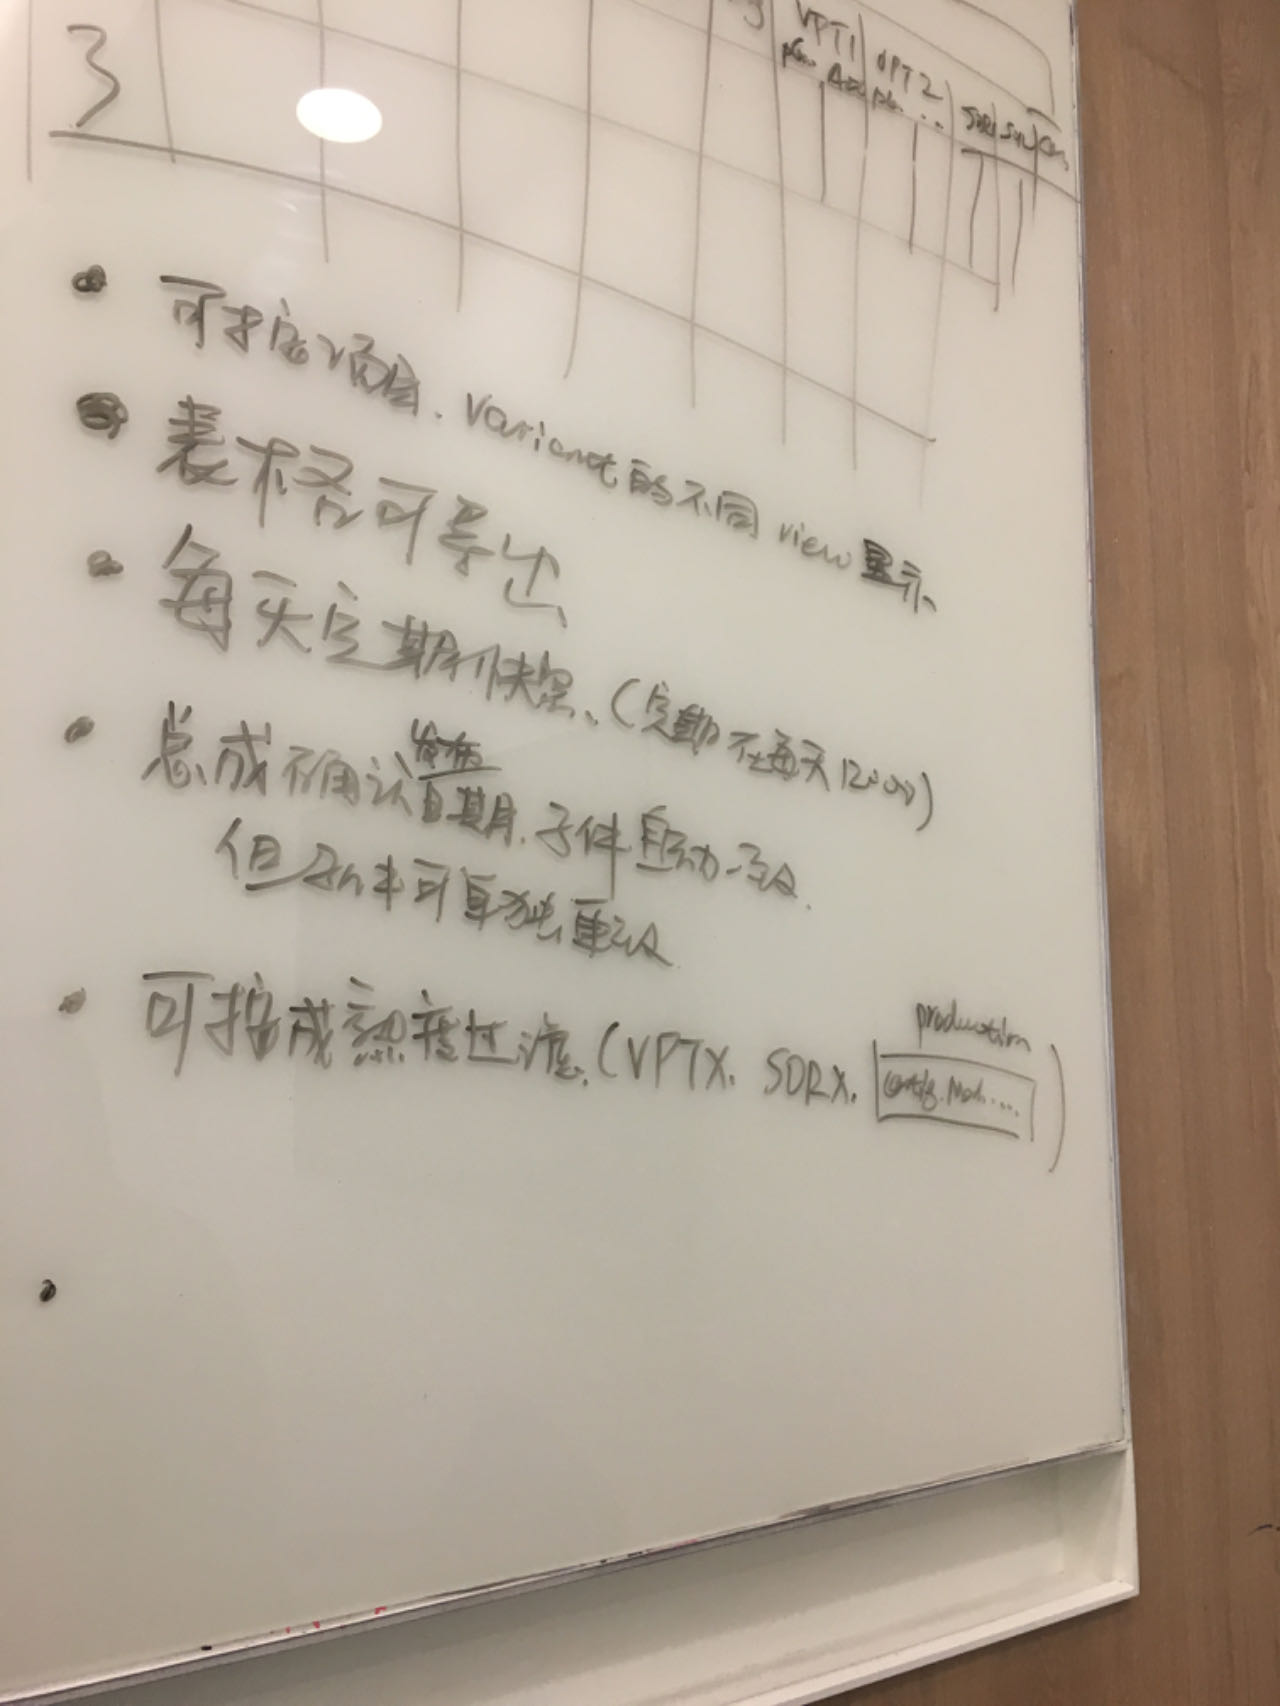 3
VPT1 VPT2
SDR1
• 可按项目、Variant的不同 view 显示
• 表格可导出
• 每天定期快照、(定期在每天12:00)
• 总成确认发布日期,子件自动一致
但子件可单独更改
• 可按成熟度过滤.(VPTX. SDRX.
production
Config. )